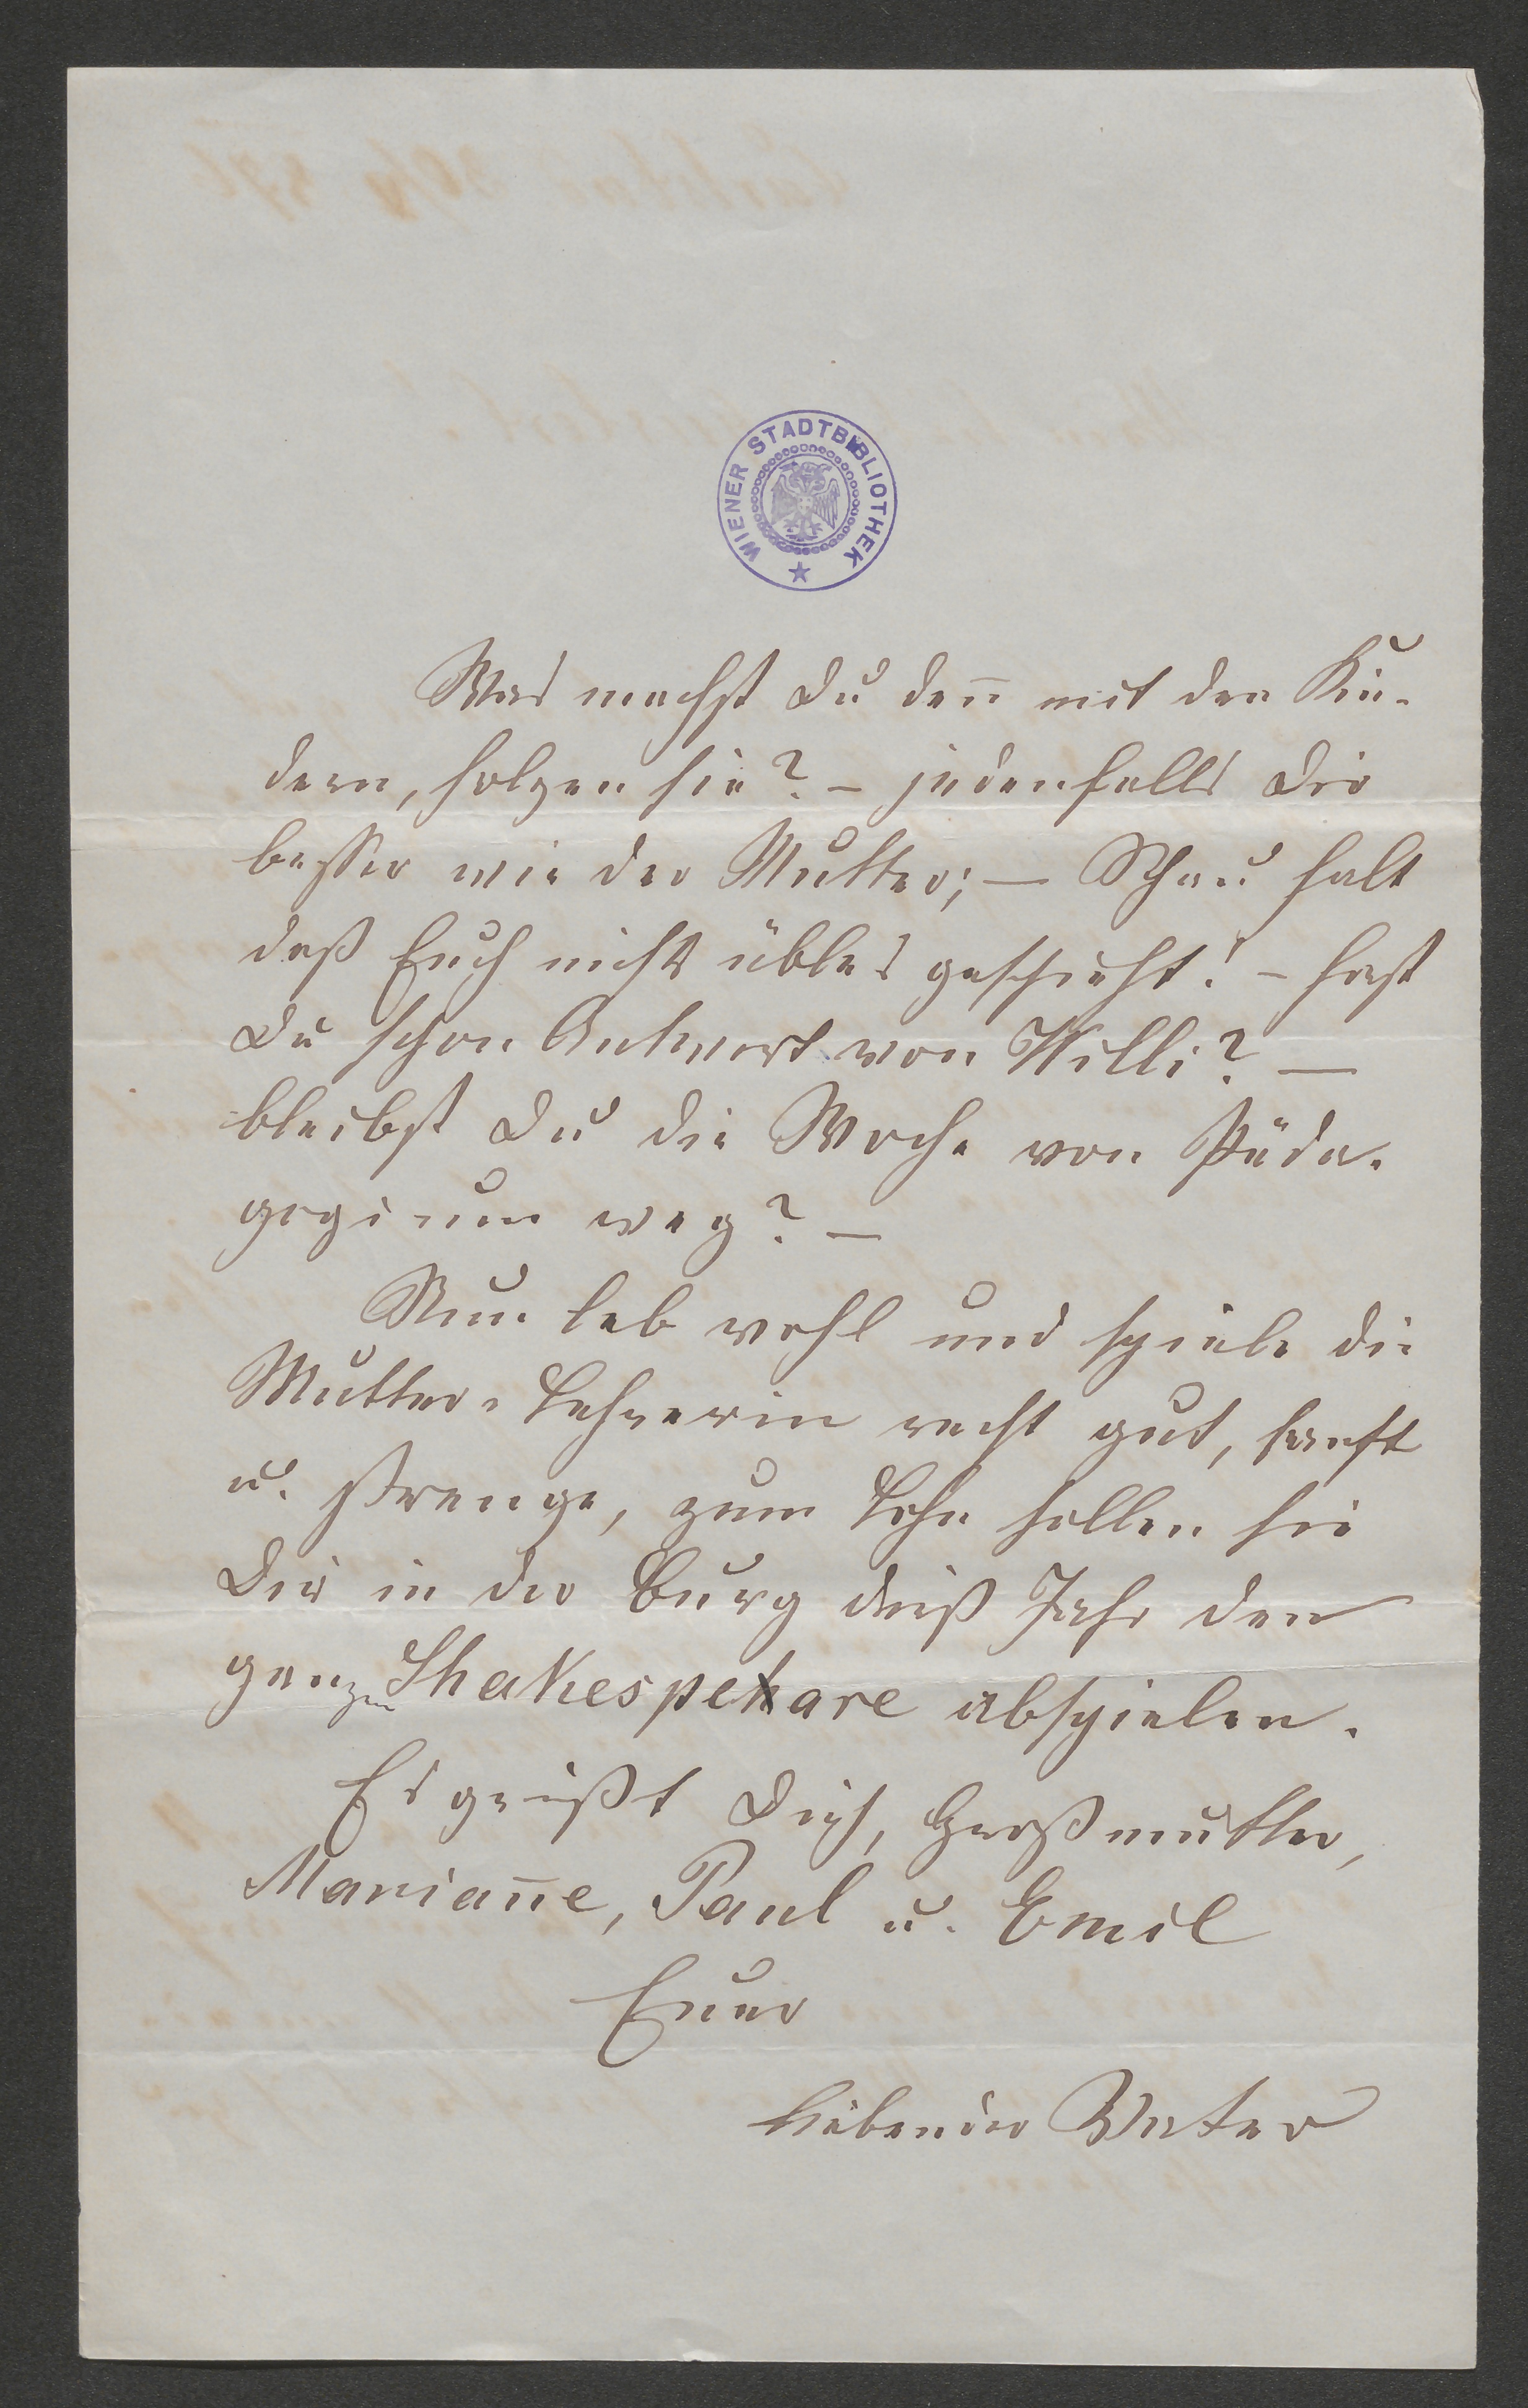 WIENER STADTBIBLIOTHEK
Was machst Du den̄ mit den Kin-
dern, folgen sie? – jedenfalls Dir
besser wie der Mutter; – Schau halt
daß Euch nichts übles geschieht! – hast
Du schon Antwort von Willi? –
bleibst Du die Woche von Päda-
gogium weg? –
Nun leb wohl und spiele die
Mutter-Lehrerin recht gut, sanft
u. strenge, zum Lohn sollen sie
Dir in der Burg dieß Jahr den
ganzen Shakespeare abspielen.
Es grüßt Dich, Großmutter,
Marian̄e, Paul u. Emil
Euer
liebender Vater